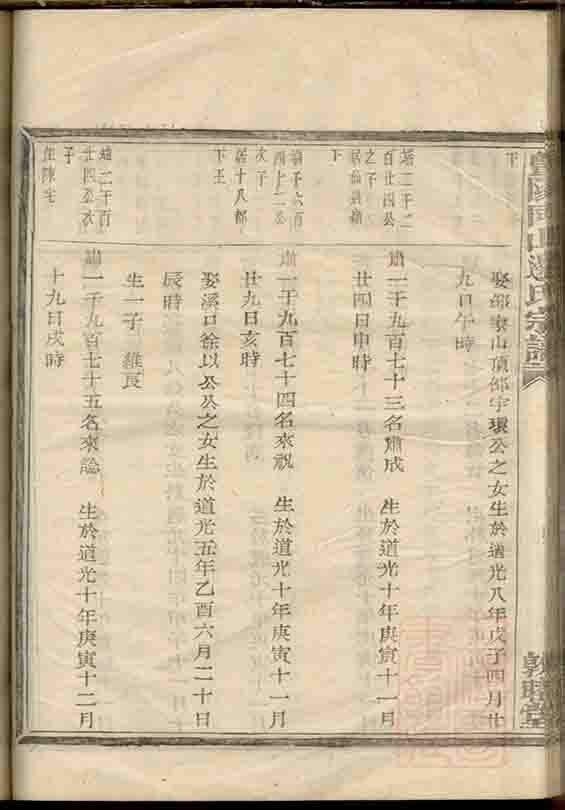 下
娶邵家山頂邵宇環公之女生於道光八年戊子四月廿
九日午時
一千九百七十三名肅成　生於道光十年庚寅十一月
廿四日申時
一千九百七十四名來祝　生於道光十年庚寅十一月
廿九日亥時
娶溪口徐以公公之女生於道光五年乙酉六月二十日
辰時
生一子　維良
一千九百七十五名來諭　生於道光十年庚寅十二月
十九日戌時
二千二
百廿四公
之子
下
四十二公
次子
居十八都
下王
二千百
廿四公次
子
住陳宅
氏宗譜
敦睦堂